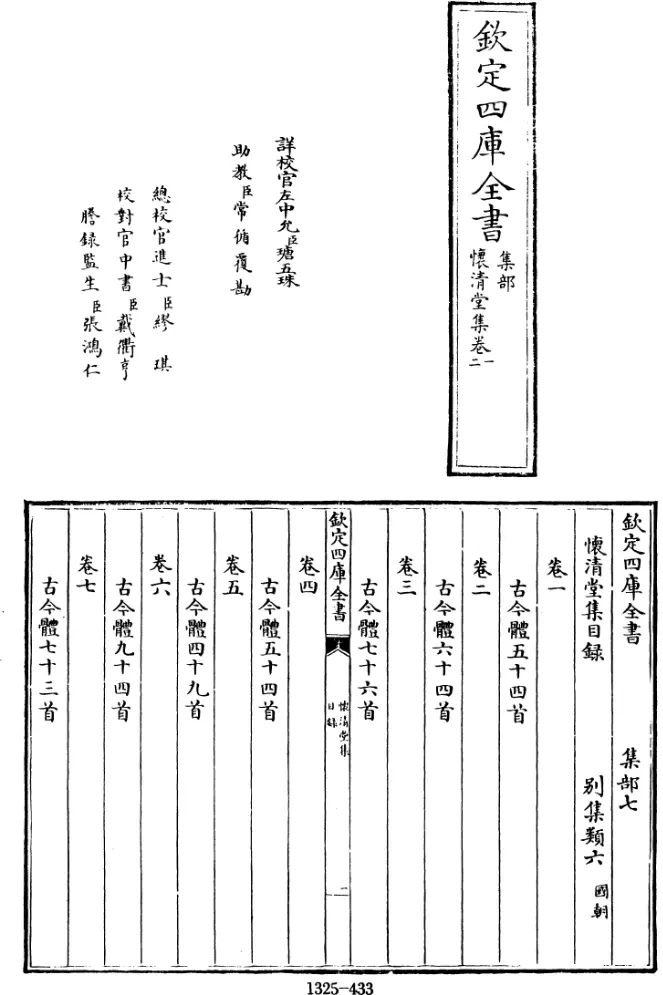 欽定四庫全書
集部
懷清堂集卷一二
詳校官左中允臣瑭五珠
助教臣常循覆勘
總校官進士臣繆琪
校對官中書臣戴衢亨
謄錄監生臣張鴻仁
欽定四庫全書 集部七
懷清堂集目録 别集類六 國朝
卷一
古今體五十四首
卷二
古今體六十四首
卷三
古今體七十六首
欽定四庫全書
懷清堂集
目録
一
卷四
古今體五十四首
卷五
古今體四十九首
卷六
古今體九十四首
卷七
古今體七十三首
1325-433